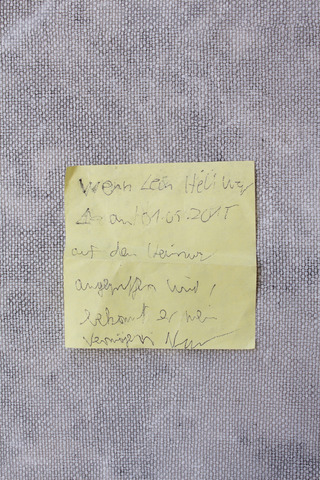 Wenn León Heli weg
am 01.05.2015
auf dem Heimweg
angegriffen wird,
bekommt er mein
Vermögen